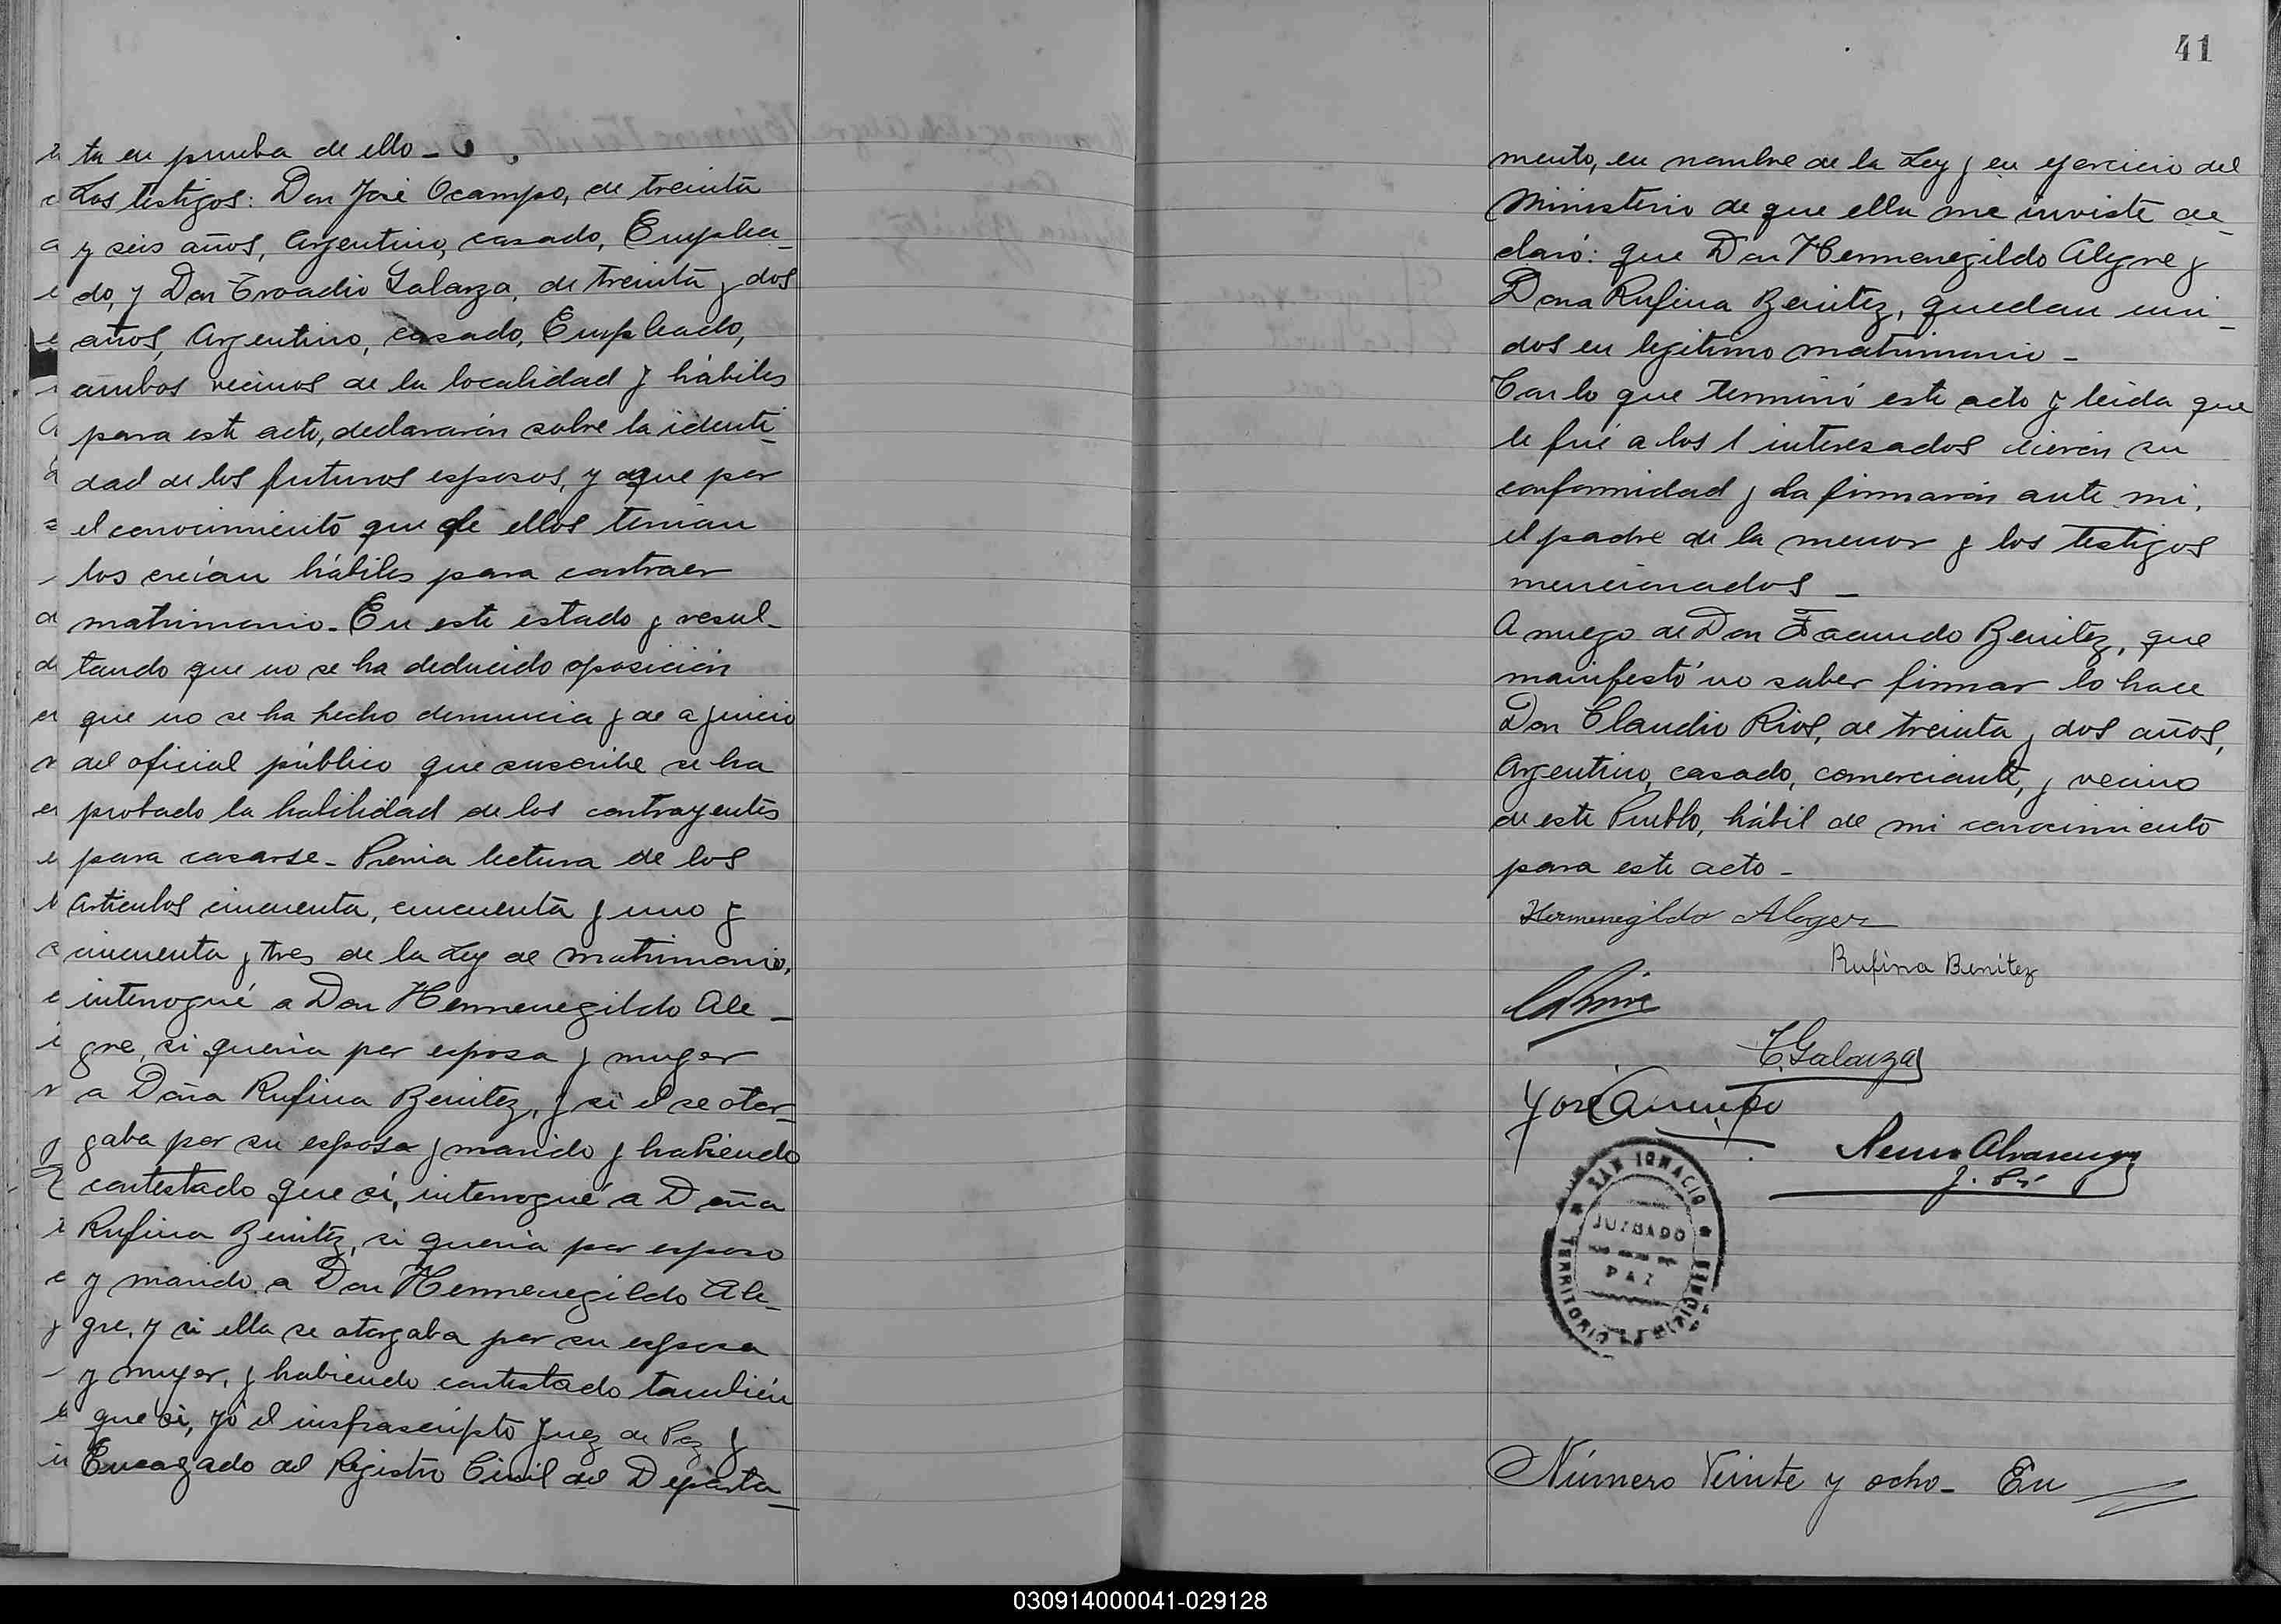 ta en prueba de ello_
Los testigos: Don José Ocampo, de treinta
y seis años, Argentino, casado, Emplea_
do, y Don Troadio Galarza, de treinta y dos
años, Argentino, casado, Empleado,
ambos vecinos de la localidad y hábiles
para este acto, declararón sobre la identi_
dad de los futuros esposos, y que por
el conocimiento que de ellos tenian
los creían hábiles para contraer
matrimonio. En este estado y resul_
tando que no se ha deducido oposición
que no se ha hecho denuncia y de a juicio
del oficial público que suscribe se ha
probado la habilidad de los contrayentes
para casarse_ Previa lectura de los
Artículos cincuenta, cincuenta y uno y
cincuenta y tres de la Ley de matrimonio,
interrogué a Don Hermenegildo Ale_
gre, si queria por esposa y muger
a Doña Rufina Benitez, y si el se otor_
gaba por su esposo y marido y habiendo
contestado que sí, interrogué a Doña
Rufina Benitez, si queria por esposo
y marido a Don Hermenegildo Ale_
gre, y si ella se otorgaba por su esposa
y mujer, y habiendo contestado también
que sí, yó el insfrascripto Juez de Paz y
Encargado del Registro Civil del Departa_
41
mento, en nombre de la Ley y en ejercicio del
Ministerio de que ella me inviste de_
claró: que Don Hermenegildo Alegre y
Dona Rufina Benitez, quedan uni_
dos en legitimo matrimonio_
Con lo que terminó este acto y leida que
le fué a los interesados dierón su
conformidad y la firmarón ante mi,
el padre de la menor y los testigos
mencionados_
A ruego de Don Facundo Benitez, que
manifestó no saber firmar lo hace
Don Claudio Rios, de treinta y dos años,
Argentino, casado, comerciante, y vecino
de este Pueblo, hábil de mi conocimiento
para este acto_
Hermenegildo
Rufina Benítez
T. Galarza
José Ocampo
J. P.
SAN IGNACIO
JUZGADO
DE
PAZ
TERRITORIO MISIONES
Número Veinte y ocho_ En
030914000041-029128